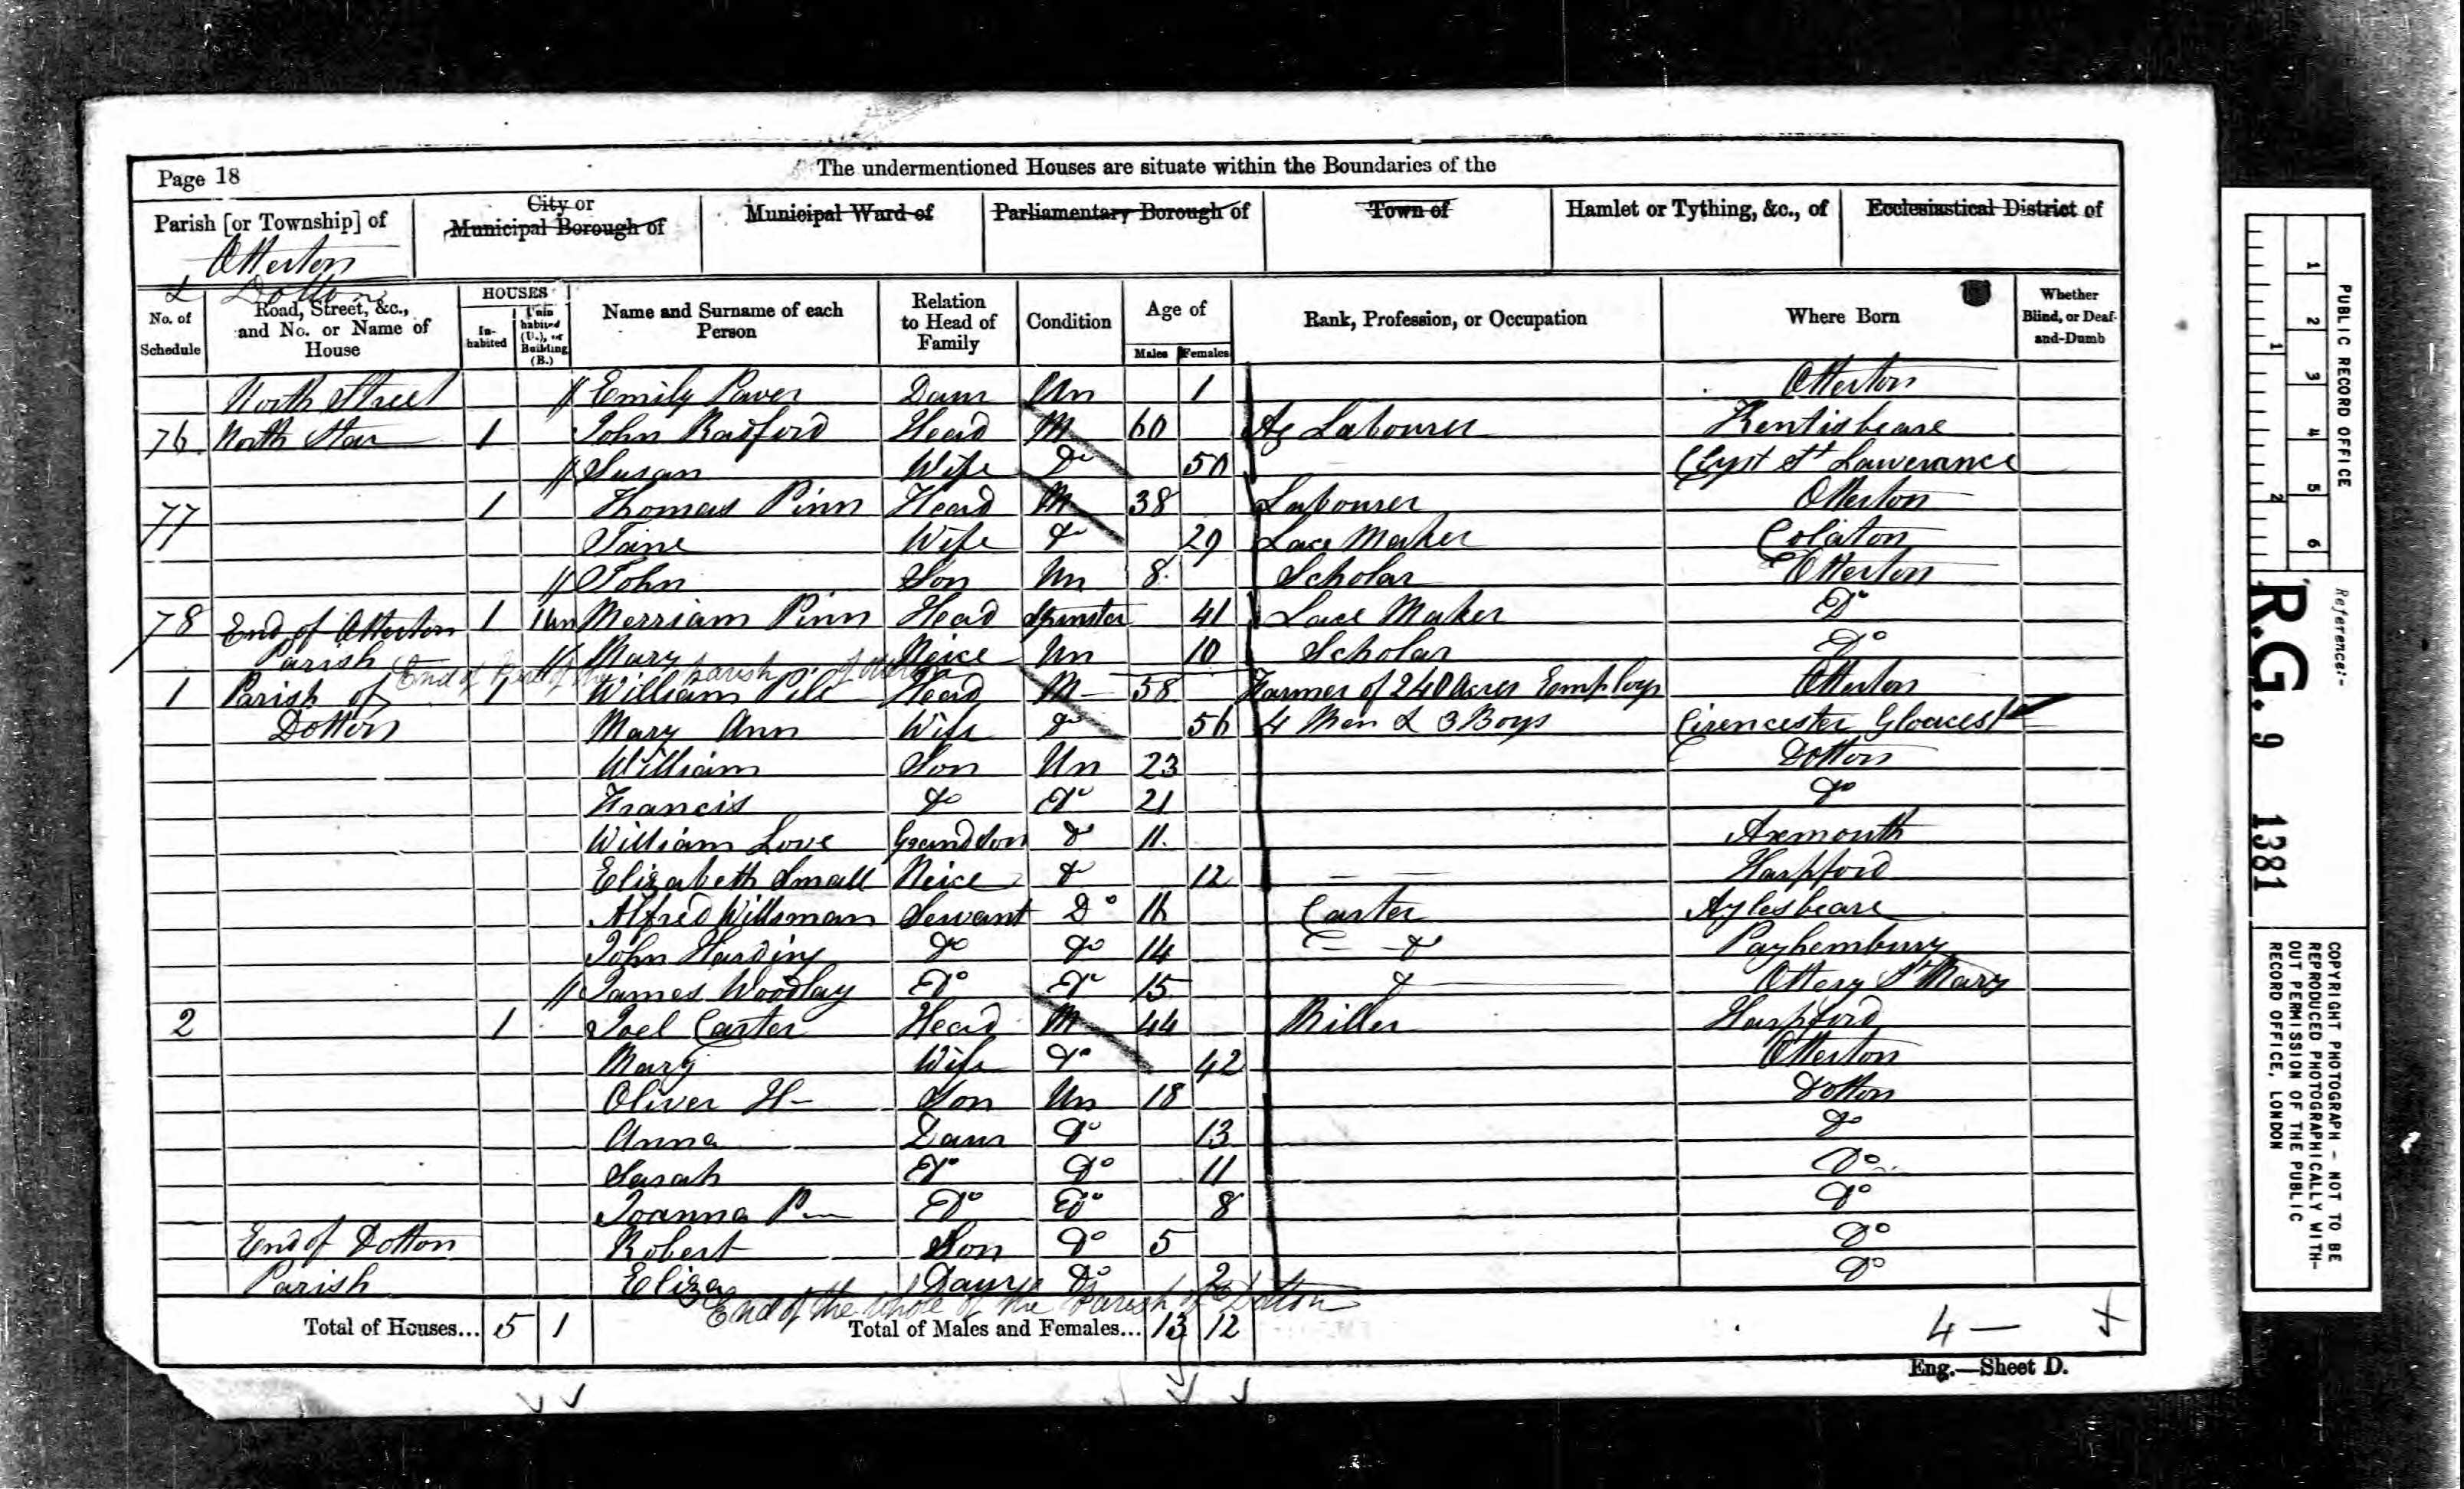 Page 18
The undermentioned Houses are situate within the Boundaries of the
Parish [or Township] of
Otterton
& Dotton
City or
Municipal Borough of
Municipal Ward of
Parliamentary Borough of
Town of
Hamlet or Tything, &c., of
Ecclesiastical District of
No. of Schedule
Road, Street, &c., and No. or Name of House
HOUSES
In-habited
Unin habited (U.), or Building (B.)
Name and Surname of each Person
Relation to Head of Family
Condition
Age of
Males Females
Rank, Profession, or Occupation
Where Born
Whether Blind, or Deaf-and-Dumb
North Street // Emily Paver Daur Un 1 Otterton
76 North Star 1 John Radford Head M 60 Ag Labourer Kentisbeare
// Susan Wife Do 50 Clyst St Lawerance
77 1 Thomas Pinn Head M 38 Labourer Otterton
Jane Wife Do 29 Lace Maker Colaton
// John Son Un 8 Scholar Otterton
78 End of Otterton 1 1 Un Merriam Pinn Head Spinster 41 Lace Maker Do
Parish // Mary Neice Un 10 Scholar Do
End of Parish of Otterton
1 Parish of 1 William Pile Head M 58 Farmer of 240 Acres Employs Otterton
Dotton Mary Ann Wife Do 56 4 Men & 3 Boys Cirencester Glocest
William Son Un 23 Dotton
Francis Do Do 21 Do
William Love Grandson Do 11 Axmouth
Elizabeth Small Neice Do 12 Harpford
Alfred Willsman Servant Do 16 Carter Aylesbeare
John Harding Do Do 14 Do Payhembury
// James Woodlay Do Do 15 Do Ottery St Mary
2 1 Joel Carter Head M 44 Miller Harpford
Mary Wife Do 42 Otterton
Oliver H- Son Un 18 Dotton
Anna Daur Do 13 Do
Sarah Do Do 11 Do
Joanna P- Do Do 8 Do
End of Dotton Robert Son Do 5 Do
Parish Eliza Daur Do 2 Do
End of the whole of the Parish of Dotton
Total of Houses... 5 1 Total of Males and Females... 13 12
4 —
Eng.—Sheet D.
PUBLIC RECORD OFFICE
1 2 3 4 5 6
1 2
Reference:-
R.G. 9 1381
COPYRIGHT PHOTOGRAPH - NOT TO BE
REPRODUCED PHOTOGRAPHICALLY WITH-
OUT PERMISSION OF THE PUBLIC
RECORD OFFICE, LONDON